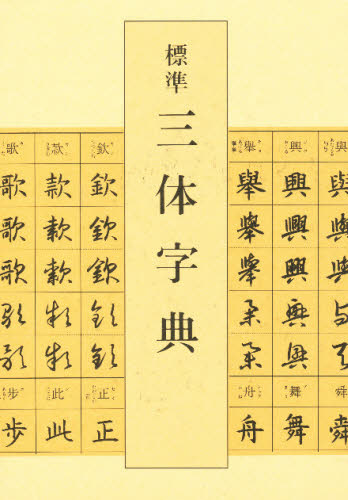 標準
三体字典
與與與與與與舜舜
興興興興興興舞舞
舉舉舉舉舉舉舟舟
欽欽欽欽欽欽正正
款款款款款款此此
歌歌歌歌歌歌步步